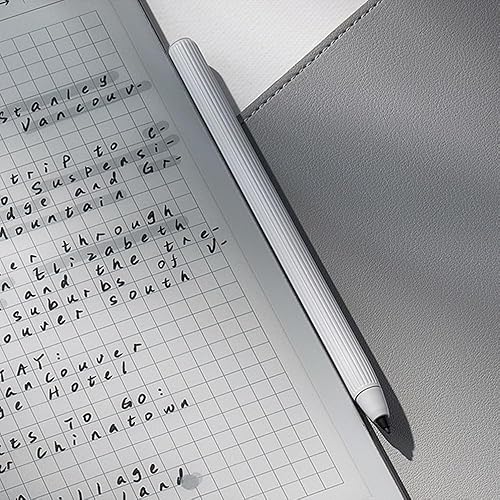 Stanley
Vancouv-
trip to e-
o Suspensi-
dge and Gr-
Mountain
er through
n Elizabeth
and the tre-
suburbs of V-
ouver south
TAY:
ancouver
ge Hotel
TS TO GO:
r chinatown
illage
land